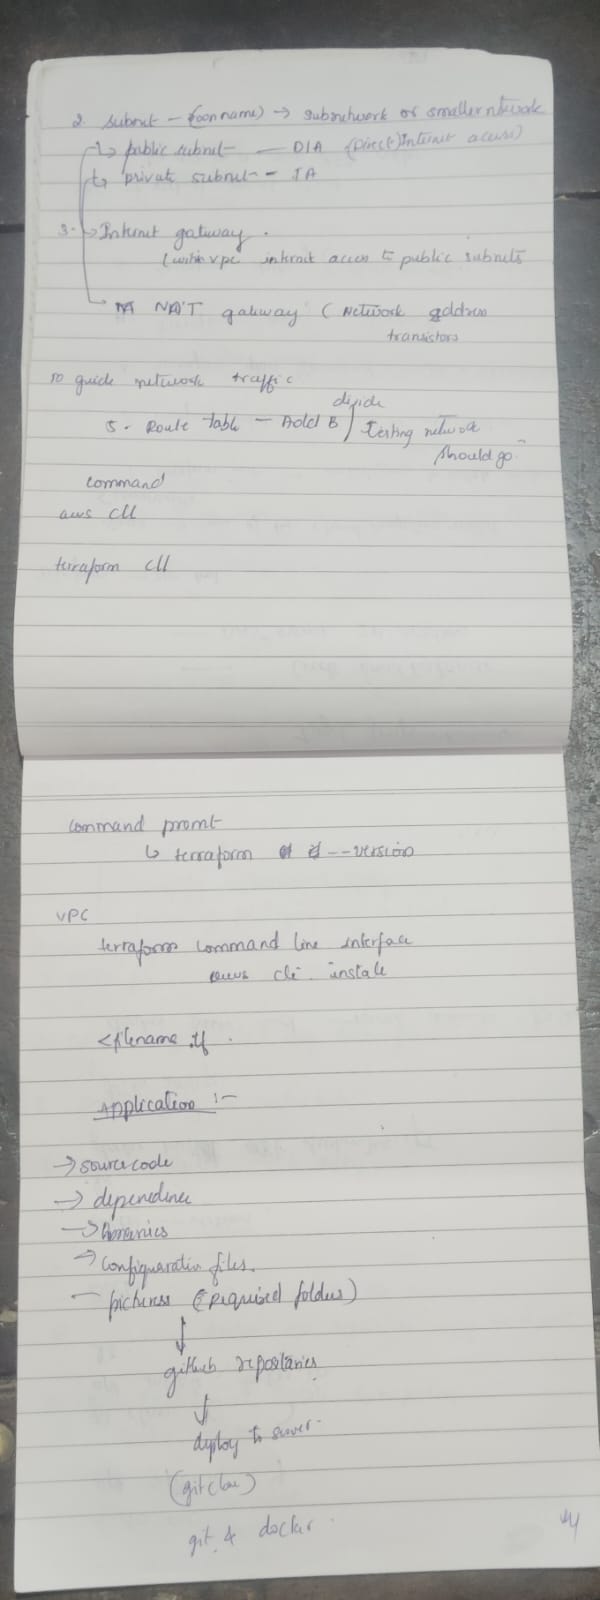 2. subnet - (con name) → subnetwork or smaller network
↳ public subnet — DIA (Direct) Internet access)
↳ private subnet - IA
3. → Internet gateway.
(within vpc internet access to public subnets
NAT gateway (Network address
transistors
to guide network traffic
divide
5. Route table - Add B / testing network
should go
command
aws cli
terraform cli
command promt
↳ terraform --version
VPC
terraform command line interface
aws cli install
<filename .tf
Application :-
→ source code
→ dependence
→
→ Configuration files.
— pictures (Required folders)
↓
github repositaries
↓
deploy to server.
(git clone)
git & docker.